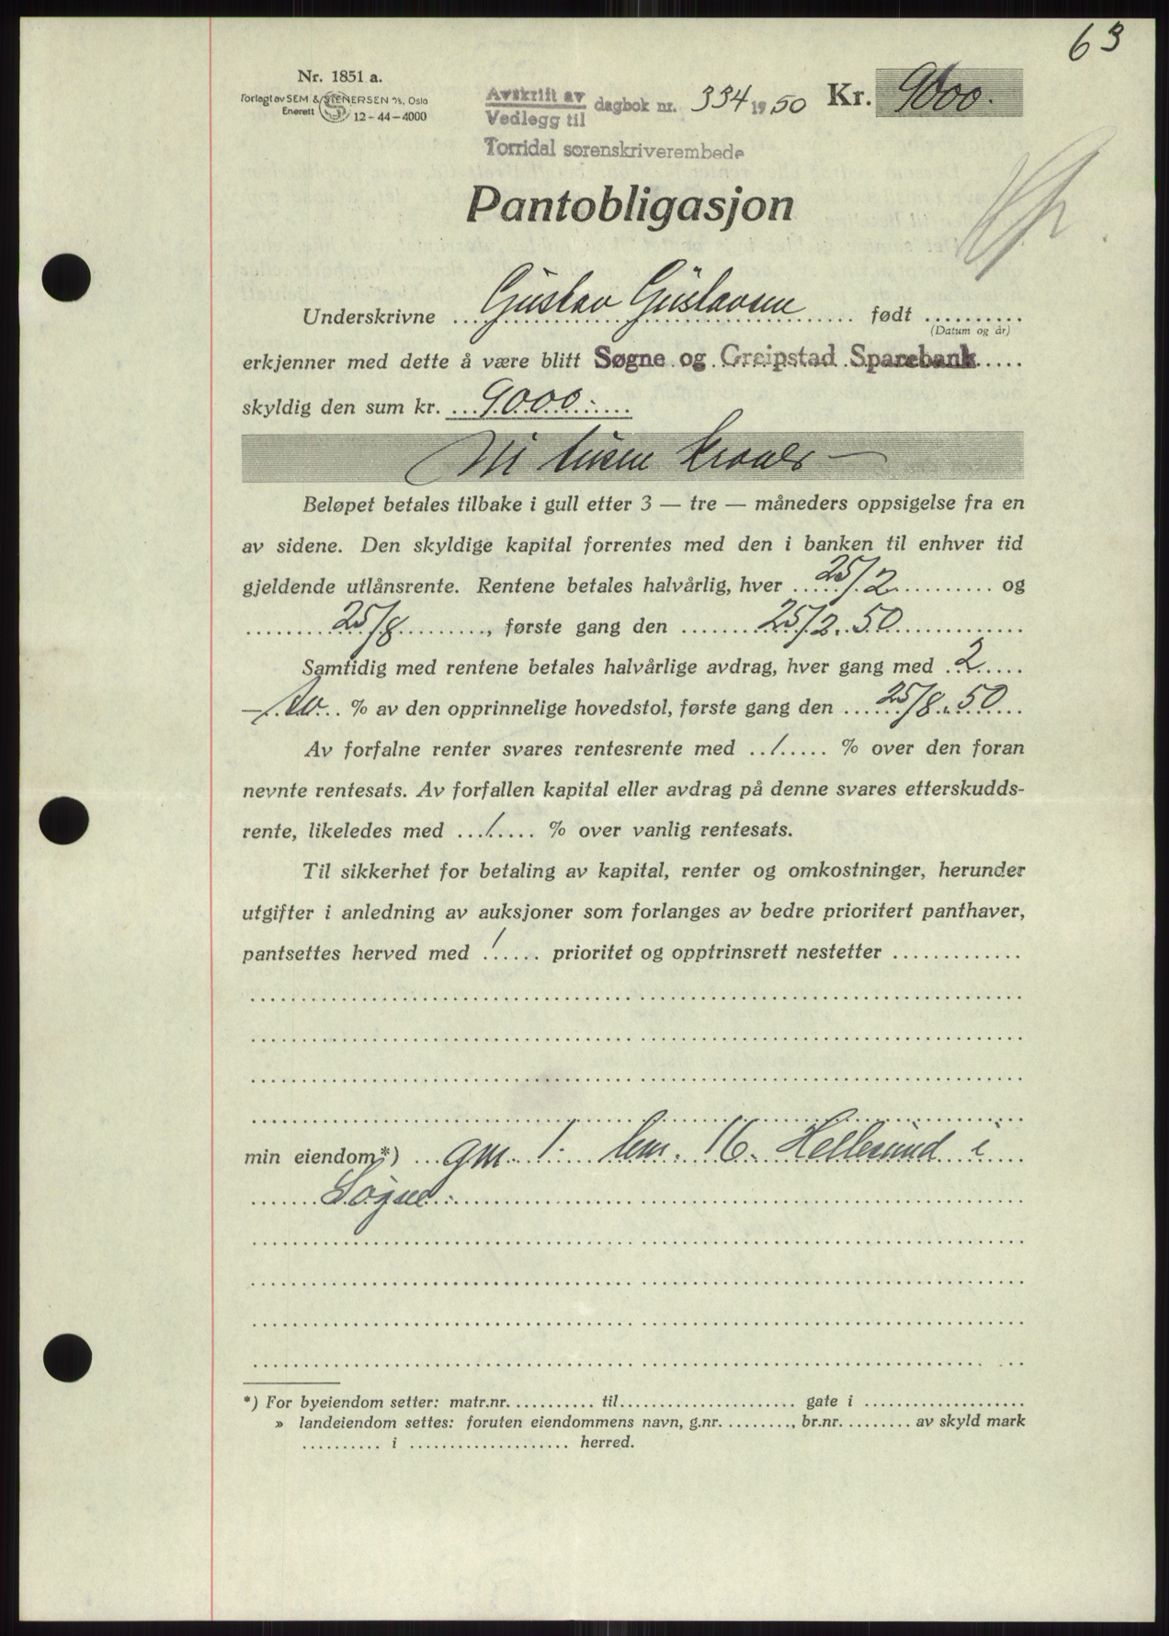 63
Nr. 1851 a.
Forlagt av SEM & STENERSEN A/S, Oslo
Enerett 12-44-4000
Avskrift av
Vedlegg til
dagbok nr. 334 1950 Kr. 9000.
Torridal sorenskriverembede
Pantobligasjon
Underskrivne Gustav Gustavsen født
(Datum og år)
erkjenner med dette å være blitt Søgne og Greipstad Sparebank
skyldig den sum kr. 9000.-
Ni tusen kroner —
Beløpet betales tilbake i gull etter 3 — tre — måneders oppsigelse fra en
av sidene. Den skyldige kapital forrentes med den i banken til enhver tid
gjeldende utlånsrente. Rentene betales halvårlig, hver 25/2 og
25/8, første gang den 25/2.50
Samtidig med rentene betales halvårlige avdrag, hver gang med 2
-to % av den opprinnelige hovedstol, første gang den 25/8.50
Av forfalne renter svares rentesrente med 1 % over den foran
nevnte rentesats. Av forfallen kapital eller avdrag på denne svares etterskudds-
rente, likeledes med 1 % over vanlig rentesats.
Til sikkerhet for betaling av kapital, renter og omkostninger, herunder
utgifter i anledning av auksjoner som forlanges av bedre prioritert panthaver,
pantsettes herved med 1 prioritet og opptrinsrett nestetter
min eiendom*) gnr. 1. bnr. 16. Hellesund i
Søgne.
*) For byeiendom setter: matr.nr. til gate i
» landeiendom settes: foruten eiendommens navn, g.nr. , br.nr. av skyld mark
i herred.